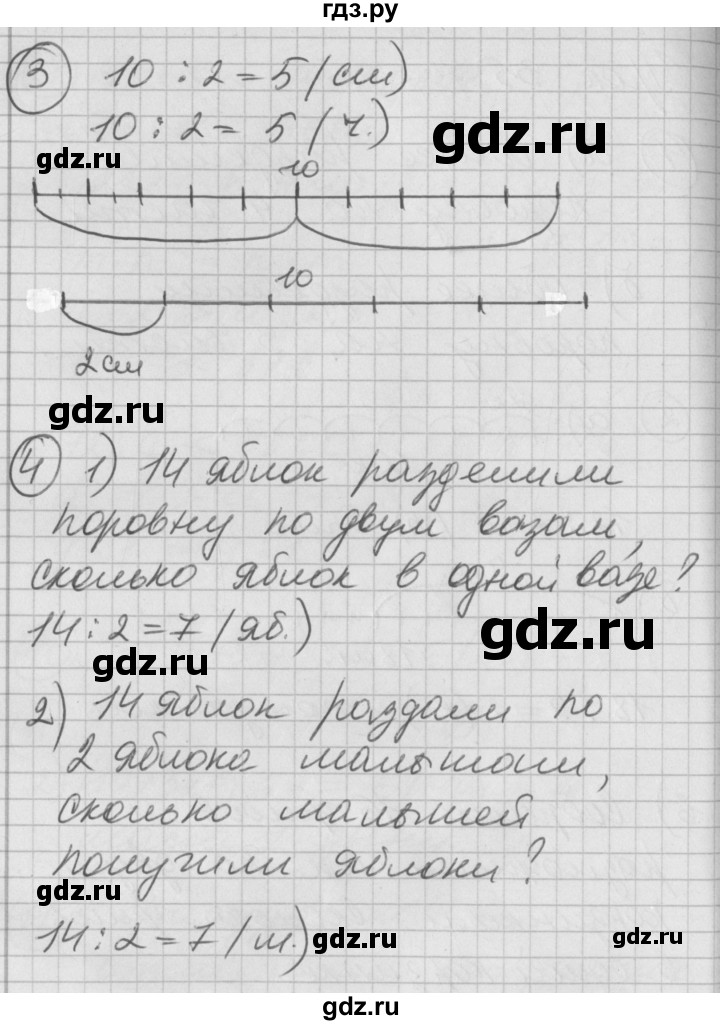 гдз.ру
3 10 : 2 = 5 (см)
10 : 2 = 5 (ч.)
gdz.ru
gdz.ru
10
10
2 см
gdz.ru
4 1) 14 яблок разделили
поровну по двум вазам,
сколько яблок в одной вазе?
14 : 2 = 7 (яб.)
gdz.ru
gdz.ru
2) 14 яблок раздали по
2 яблока малышам,
сколько малышей
получили яблоки?
gdz.ru
14 : 2 = 7 (м.)
gdz.ru
gdz.ru
gdz.ru